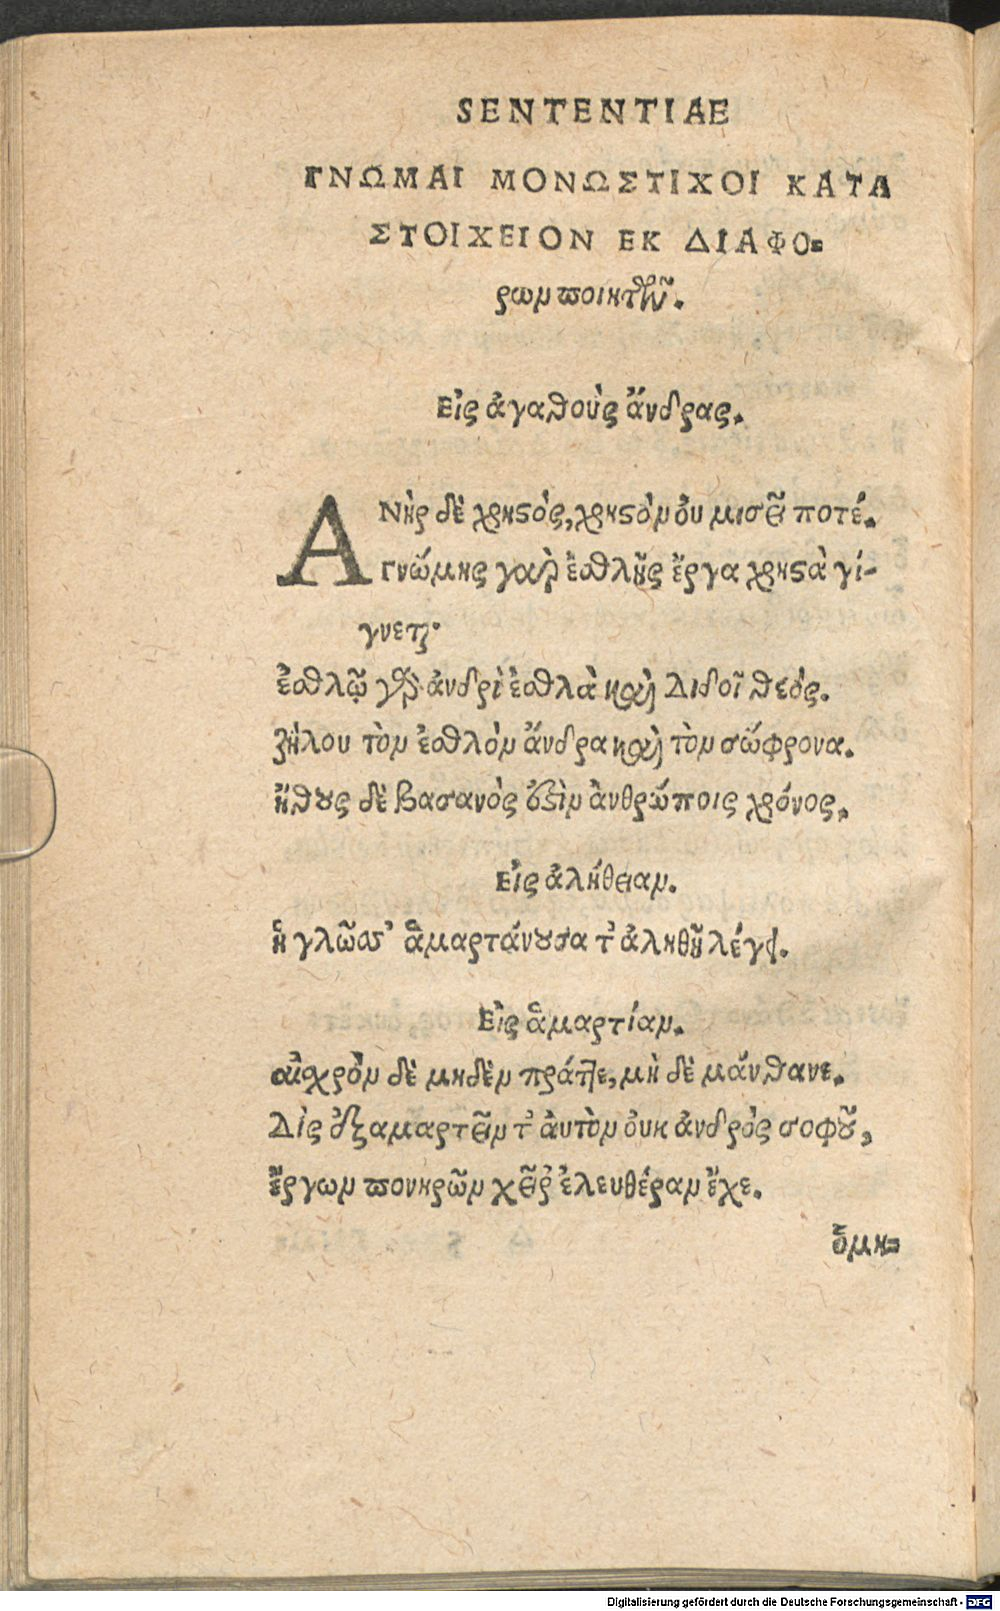 SENTENTIAE
ΓΝΩΜΑΙ ΜΟΝΩΣΤΙΧΟΙ ΚΑΤΑ
ΣΤΟΙΧΕΙΟΝ ΕΚ ΔΙΑΦΟ=
ρων ποιητῶν.
Εἰς ἀγαθοὺς ἄνδρας.
ΑΝὴρ δὲ χρηϛὸς, χρηϛὸν ὀυ μισεῖ ποτέ.
Γνώμης γαρ ἐσθλῆς ἔργα χρηϛὰ γί-
γνεται.
ἐσθλῷ γὰρ ἀνδρὶ ἐσθλὰ καὶ Διδοῖ θεός.
ζήλου τὸν ἐσθλὸν ἄνδρα καὶ τὸν σώφρονα.
ἤθους δὲ βασανός ὁϛὶν ἀνθρώποις χρόνος,
Εἰς ἀλήθειαν.
ἡ γλῶσσ' ἁμαρτάνουσα τ' ἀληθῆ λέγει.
Εἰς ἁμαρτίαν.
αἰσχρὸν δὲ μηδὲν πράττε, μὴ δὲ μάνθανε.
Δὶς ἐξαμαρτεῖν τ' ἀυτὸν ὀυκ ἀνδρὸς σοφοῦ,
ἔργων πονηρῶν χεῖρ' ἐλευθέραν ἔχε.
ὃ μη=
Digitalisierung gefördert durch die Deutsche Forschungsgemeinschaft - DFG